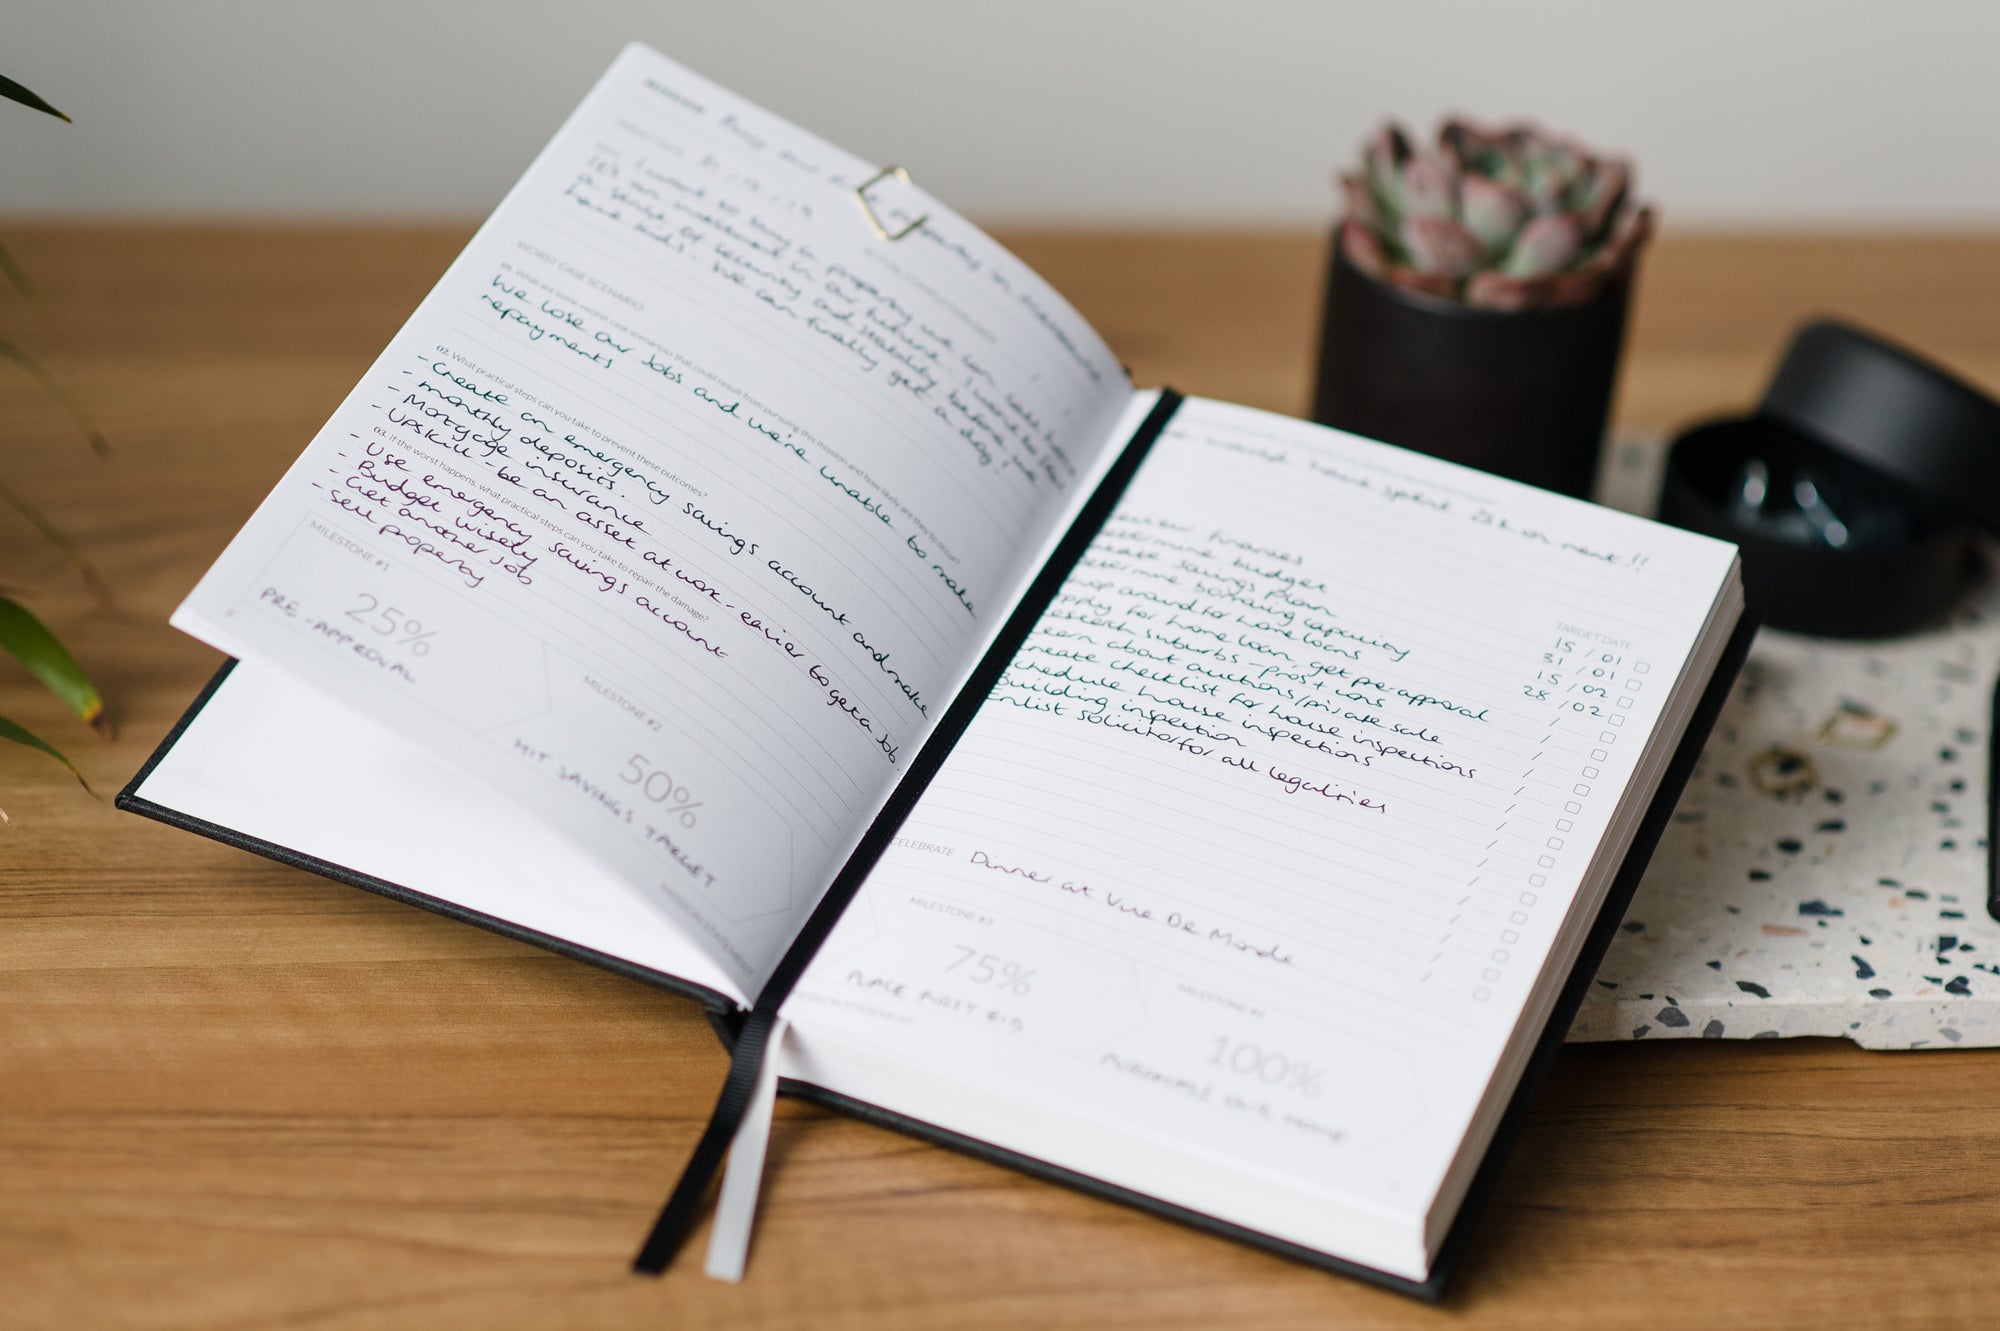 Buy our
property in
31 / 12 / 19
I want to buy a property we can call home.
It's an investment in our future. I want to feel
a sense of security and stability before we
have kids. We can finally get a dog!
WORST CASE SCENARIO
01. What are some «worst case scenarios» that could result from pursuing this mission and how likely are they to occur?
We lose our jobs and we're unable to make
repayments
02. What practical steps can you take to prevent these outcomes?
- Create an emergency savings account and make
monthly deposits.
- Mortgage insurance
- Upskill - be an asset at work - easier to get a job.
03. If the worst happens, what practical steps can you take to repair the damage?
- Use emergency savings account
- Budget wisely
- Get another job
- Sell property
MILESTONE #1
25%
PRE-APPROVAL
MILESTONE #2
50%
HIT SAVINGS TARGET
MISSION STATEMENT
would have spent 25k on rent!!
TARGET DATE
review finances 15 / 01
determine budget 31 / 01
create savings plan 15 / 02
determine borrowing capacity 28 / 02
shop around for home loans
apply for home loan, get pre-approval
research suburbs - pros + cons
Learn about auctions/private sale
create checklist for house inspections
Schedule house inspections
Building inspection
Enlist solicitor for all legalities
CELEBRATE Dinner at Vue De Monde
MILESTONE #3
75%
PLACE FIRST BID
MISSION STATEMENT
MILESTONE #4
100%
PURCHASE OUR HOME